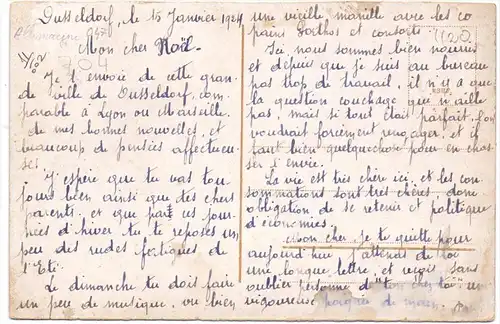 Dusseldorf, le 15 Janvier 1924
Mon cher Noël
Je t'envoie de cette gran-
de ville de Dusseldorf, com-
parable à Lyon ou Marseille
de mes bonnes nouvelles, et
beaucoup de pensées affectueu-
ses!
J'espère que tu vas tou-
jours bien ainsi que des chers
parents, et que par ces jour-
nées d'hiver tu te reposes un
peu des rudes fatigues de
l'Eté.
Le dimanche tu dois faire
un peu de musique, ou bien
une vieille manille avec les co-
pains Porthos et consorts
Ici nous sommes bien nourris
et depuis que je suis au bureau
pas trop de travail, il n'y a que
la question couchage qui n'aille
pas, mais si tout était parfait, l'on
voudrait forcément rengager, et il
faut bien quelque chose pour en chas-
ser l'envie.
La vie est très chère ici, et les con-
sommations sont très chères, donc
obligation de se retenir et politique
d'économies.
Mon cher, je te quitte pour
aujourd'hui j'attends de toi
une longue lettre, et reçois sans
oublier personne de "ton chez toi" une
vigoureuse poignée de main